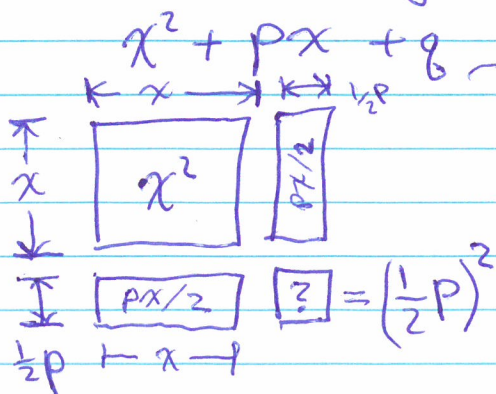 x² + px + q
x ½p
x x² px/2
px/2 ? = (½p)²
½p x